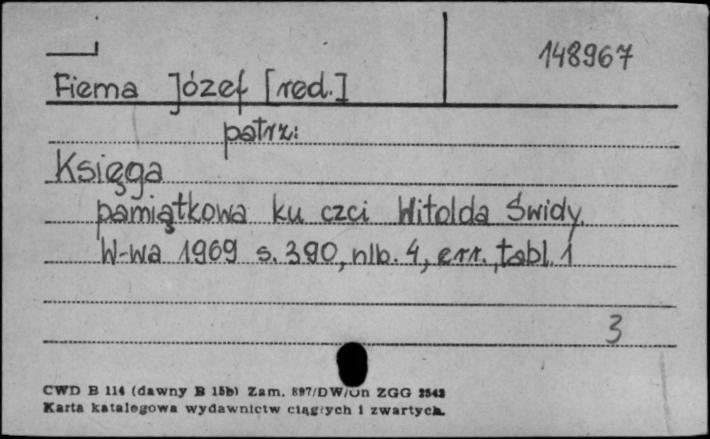 148967
Fiema Józef [red.]
patrz:
Księga
pamiątkowa ku czci Witolda Świdy
W-wa 1969 s. 390, nlb. 4, err., tabl. 1
3
CWD B 114 (dawny B 15b) Zam. 897/DW/Un ZGG 2542
Karta katalogowa wydawnictw ciągłych i zwartych.